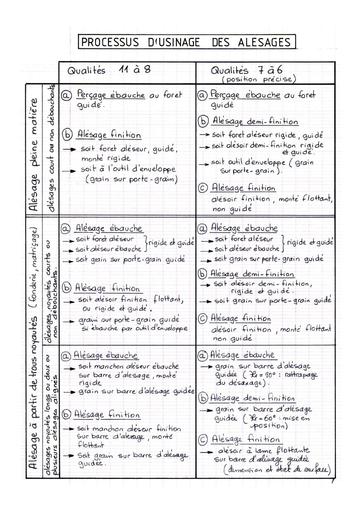 PROCESSUS D'USINAGE DES ALESAGES
Qualités 11 à 8
Qualités 7 à 6
(position précise)
Alésage pleine matière
alésages court ou non débouchants
a Perçage ébauche au foret
guidé.
b Alésage finition
→ soit foret aléseur, guidé,
monté rigide
→ soit à l'outil d'enveloppe
(grain sur porte-grain)
a Perçage ébauche au foret
guidé
b Alésage demi-finition
→ soit foret aléseur rigide, guidé
→ soit alésoir demi-finition rigide
et guidé
→ soit outil d'enveloppe (grain
sur porte-grain).
c Alésage finition
alésoir finition, monté flottant,
non guidé
Alésage à partir de trous noyautés (fonderie, matriçage)
alésages noyautés courts ou
non débouchants
a Alésage ébauche
→ soit foret aléseur
→ soit aléseur ébauche } rigide et guidé
→ soit grain sur porte-grain guidé
b Alésage finition
→ soit alésoir finition flottant,
ou rigide et guidé.
→ grain sur porte-grain guidé
si ébauche par outil d'enveloppe
a Alésage ébauche
→ soit foret aléseur
→ soit aléseur ébauche } rigide et guidé
→ soit grain sur porte-grain guidé
b Alésage demi-finition
→ soit alésoir demi-finition,
rigide et guidé.
→ soit grain sur porte-grain guidé
c Alésage finition
alésoir finition, monté flottant
non guidé
alésages noyautés longs ou deux ou
plusieurs alésages alignés
a Alésage ébauche
→ soit manchon aléseur ébauche
sur barre d'alésage, monté
rigide
→ grain sur barre d'alésage guidée
b Alésage finition
→ soit manchon aléseur finition
sur barre d'alésage, monté
flottant
→ Soit grain sur barre d'alésage
guidée.
a Alésage ébauche
→ grain sur barre d'alésage
guidée (= 90° : rattrapage
du désaxage).
b Alésage demi-finition
→ grain sur barre d'alésage
guidée (= 60° - mise en
position)
c Alésage finition
→ alésoir à lame flottante
sur barre d'alésage guidée
(dimension et état de surface)